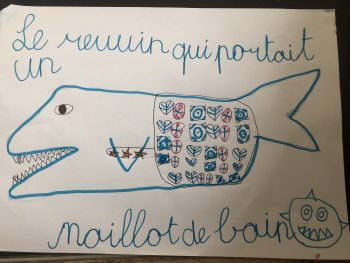 Le reuuin qui portait
un
maillot de bain